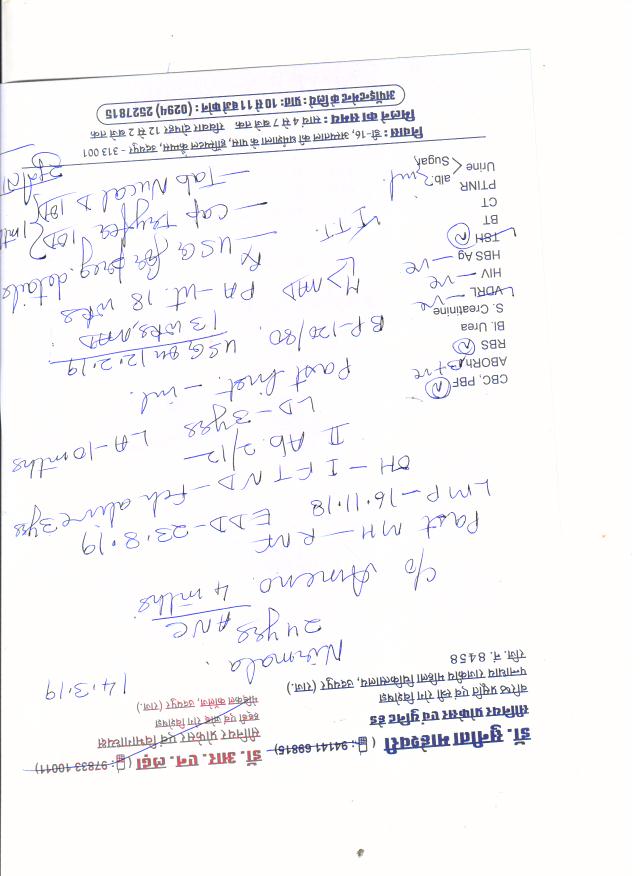 डॉ. सुनीता माहेश्वरी ( : 94141 69815)
सीनियर प्रोफेसर एवं यूनिट हेड
वरिष्ठ प्रसूति एवं स्त्री रोग विशेषज्ञ
पन्नाधाय राजकीय महिला चिकित्सालय, उदयपुर (राज.)
रजि. नं. 8458
डॉ. आर. एन. लड्ढा ( : 97833 10011)
सीनियर प्रोफेसर एवं विभागाध्यक्ष
मेडिकल कॉलेज, उदयपुर (राज.)
14.3.19
Nirmala
24 yrs
ANC
c/o Ameno. 4 mths
Past MH - R NF
LMP - 16.11.18 EDD - 23.8.19
OH - I FTND - Fch alive 3 yrs
II Ab 2/12
LD - 3 yrs LA - 10 mths
Past Hist. - nil.
USG on 12.2.19
13 wks,
BP - 120/80.
PA - ut. 18 wks
USG for preg. details
I T.T.
- Cap
- Tab Nucal D
CBC, PBF N
ABORh B+ve
RBS N
Bl. Urea
S. Creatinine
VDRL - -ve
HIV - -ve
HBS Ag - -ve
TSH N
BT
CT
PTINR
Urine < alb. Sugar nil
निवास : डी-16, अस्पताल की धर्मशाला के पास, हॉस्पिटल केम्पस, उदयपुर - 313 001
मिलने का समय : सायं 4 से 7 बजे तक रविवार दोपहर 12 से 2 बजे तक
अपॉइन्टमेन्ट के लिये प्रातः 10 से 11 बजे फोन : (0294) 2527815